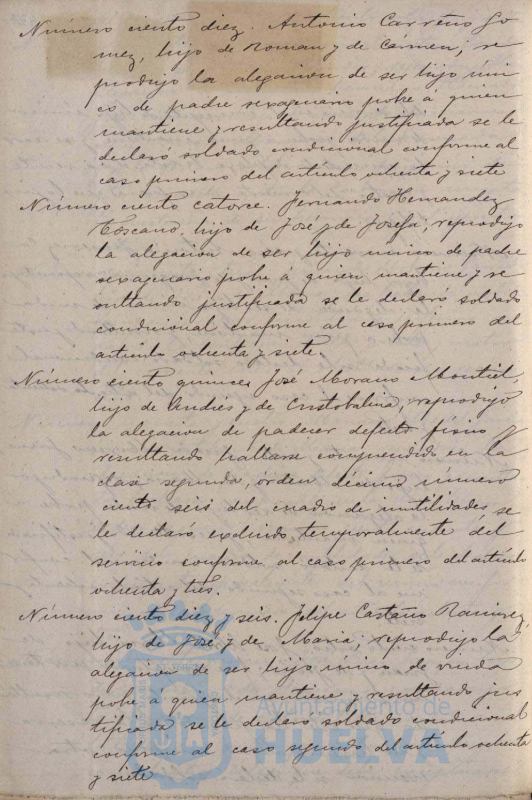 Número ciento diez. Antonio Carreño Go
mez, hijo de Roman y de Cármen; re
produjo la alegacion de ser hijo úni
co de padre sexagenario pobre á quien
mantiene y resultando justificada se le
declaró soldado condicional conforme al
caso primero del artículo ochenta y siete
Número ciento catorce. Fernando Hernandez
Toscano, hijo de José y de Josefa; reprodujo
la alegacion de ser hijo unico de padre
sexagenario pobre á quien mantiene y re
sultando justificada se le declaró soldado
condicional conforme al caso primero del
artículo ochenta y siete.
Número ciento quince José Morano Montiel,
hijo de Andrés y de Cristobalina, reprodujo
la alegacion de padecer defecto físico y
resultando hallarse comprendido en la
clase segunda, órden décimo número
ciento seis del cuadro de inutilidades, se
le declaró excluido temporalmente del
servicio conforme al caso primero del artículo
ochenta y tres.
Número ciento diez y seis. Felipe Castaño Ramirez,
hijo de José y de Maria; reprodujo la
alegacion de ser hijo unico de viuda
pobre a quien mantiene y resultando jus
tificada se le declaro soldado condicional
conforme al caso segundo del artículo ochenta
y siete
Ayuntamiento de
HUELVA